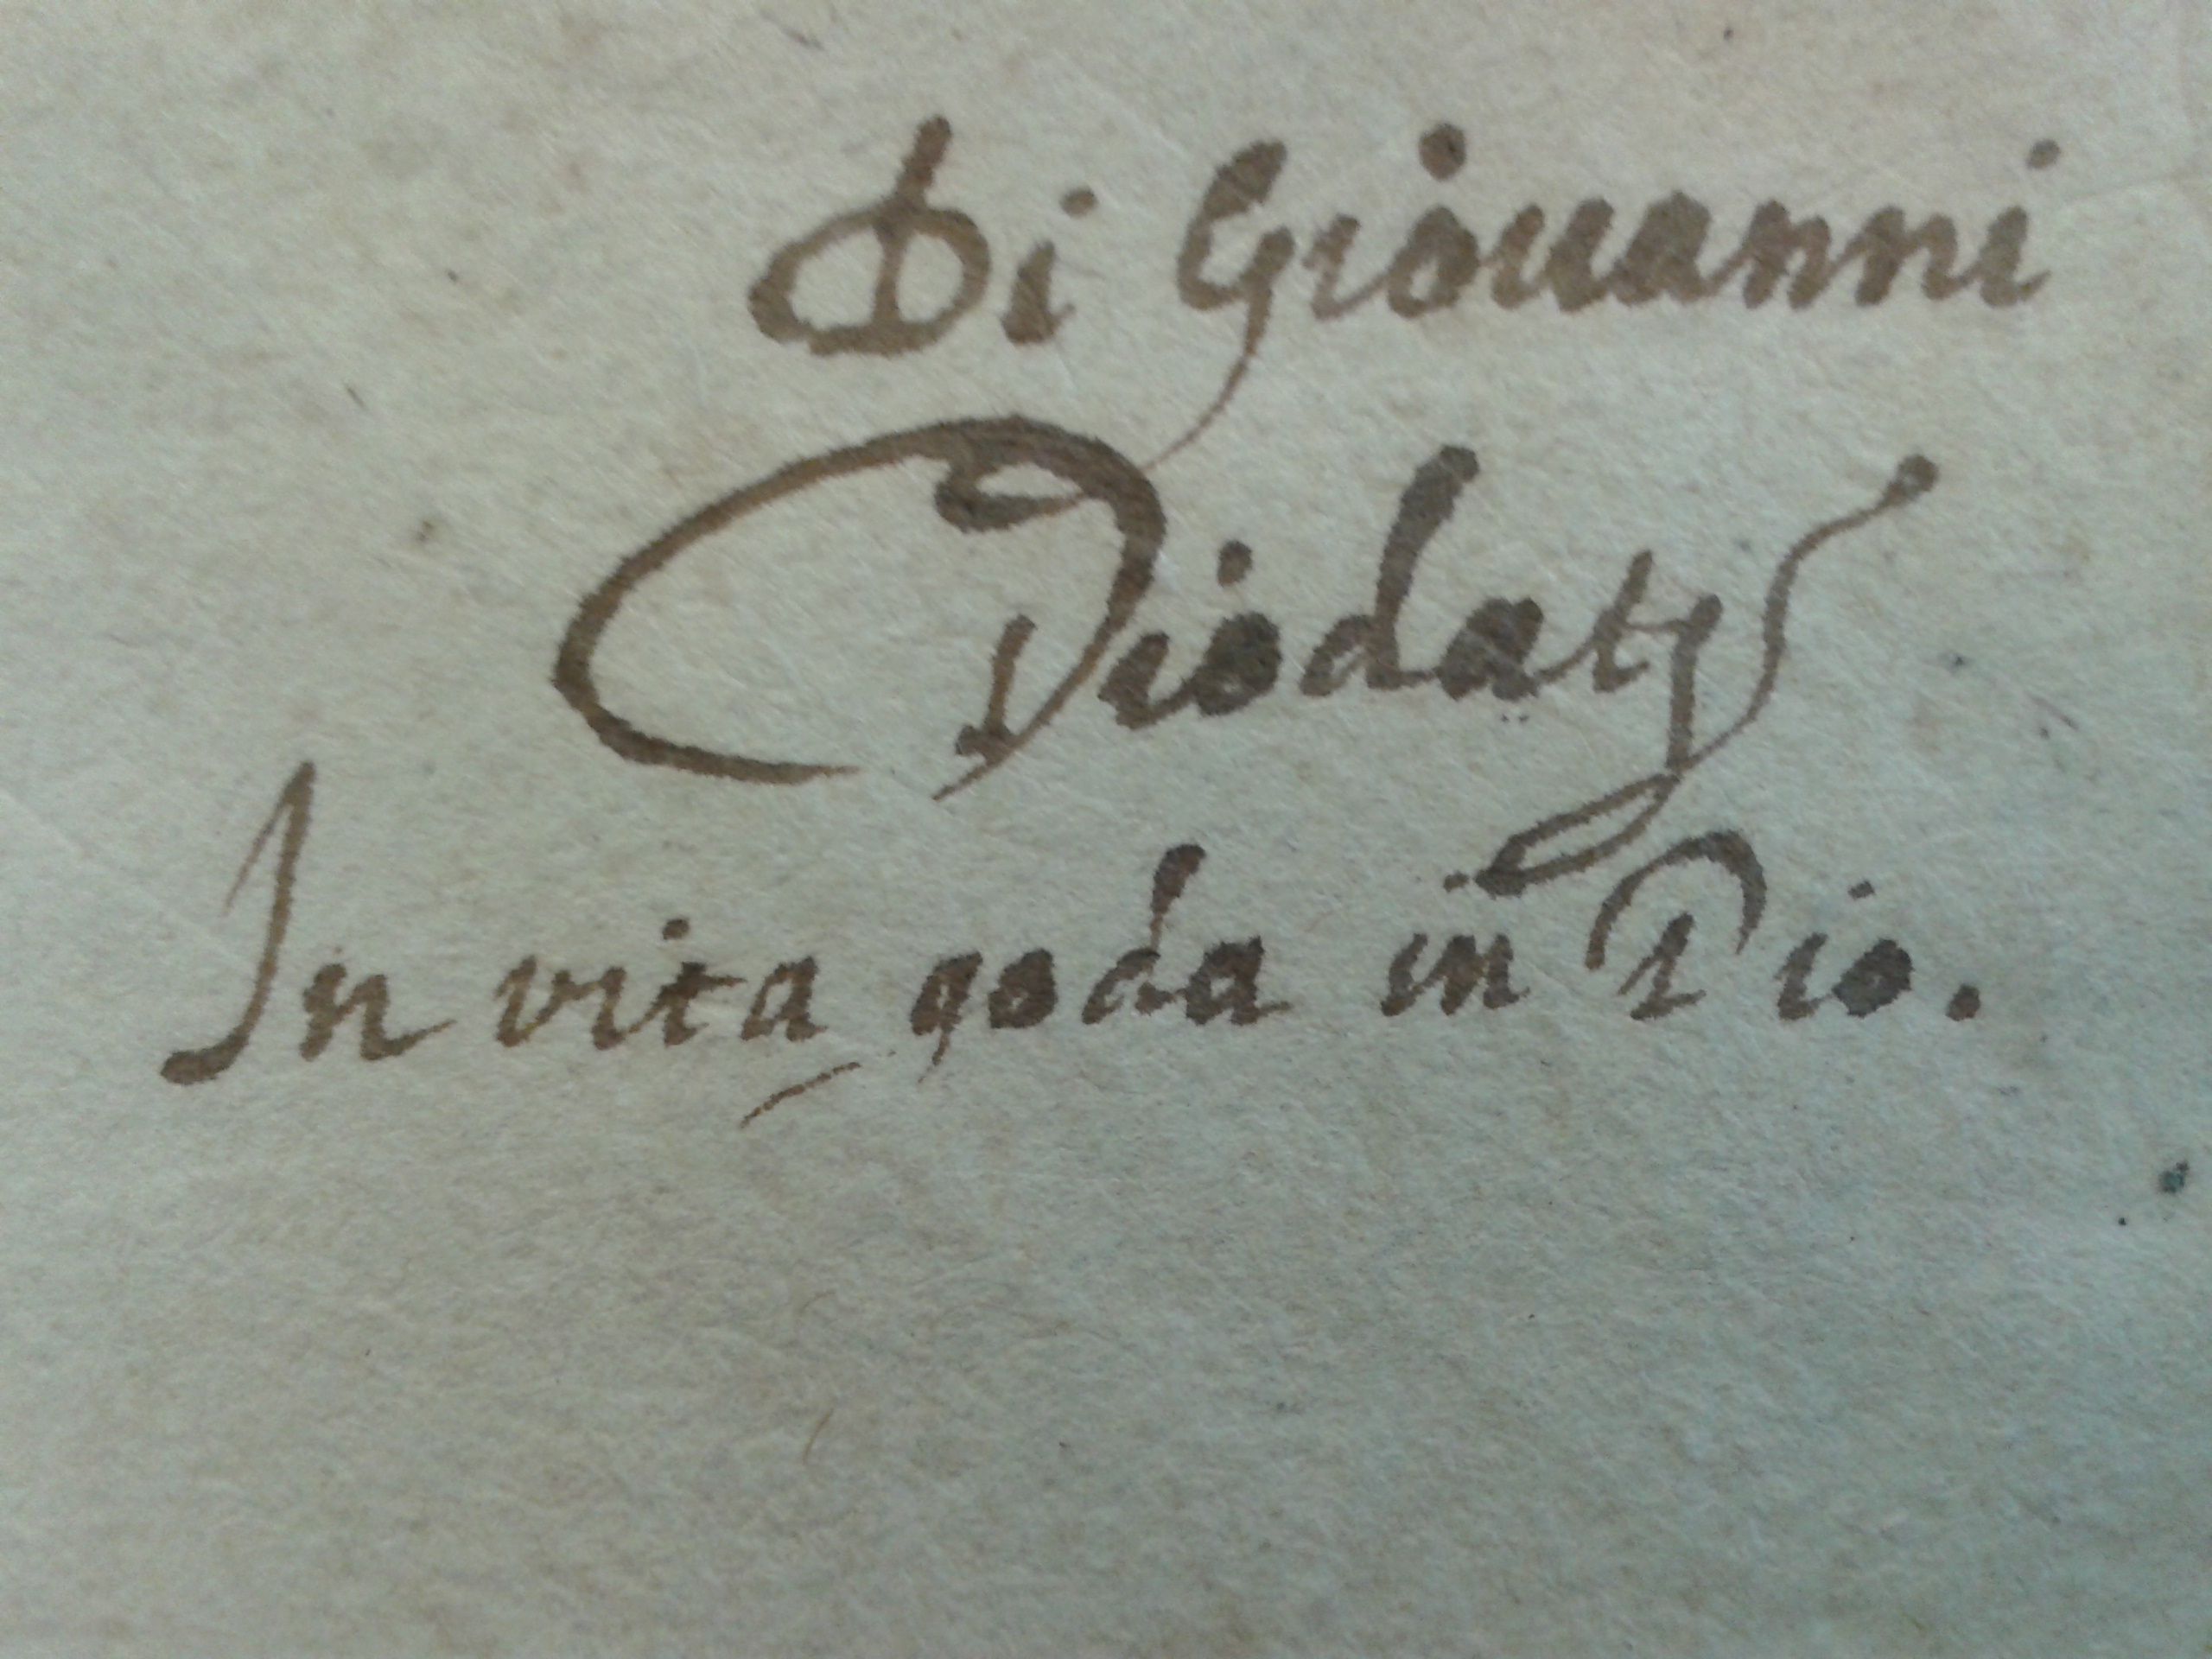 Di Giouanni
Diodatj
In vita goda in Dio.